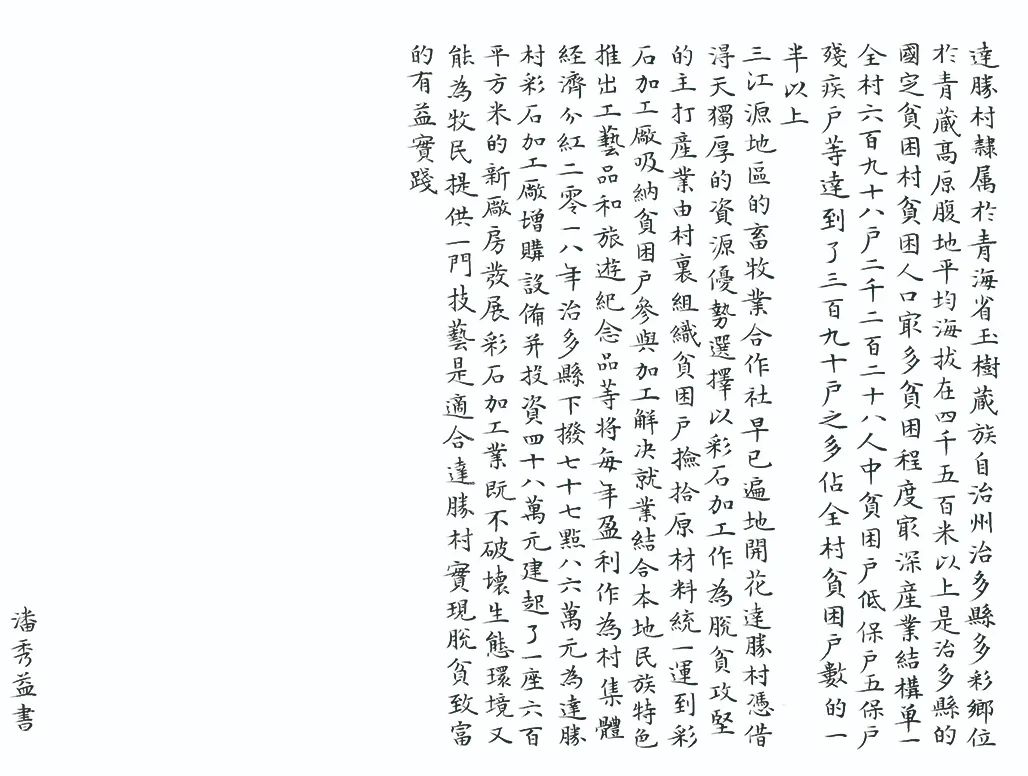 達勝村隸属扵青海省玉樹蔵族自治州治多縣多彩鄉位
扵青蔵高原腹地平均海拔在四千五百米以上是治多縣的
國定貧困村貧困人口冣多貧困程度冣深産業結構单一
全村六百九十八户二千二百二十八人中貧困户低保户五保户
殘疾户等達到了三百九十户之多佔全村貧困户數的一
半以上
三江源地區的畜牧業合作社早已遍地開花達勝村憑借
淂天獨厚的資源優勢選擇以彩石加工作為脫貧攻堅
的主打産業由村裏組織貧困户撿拾原材料統一運到彩
石加工廠吸納貧困户參與加工解决就業結合本地民族特色
推出工藝品和旅遊紀念品等将每年盈利作為村集體
経濟分紅二零一八年治多縣下撥七十七點八六萬元為達勝
村彩石加工廠增購設俻并投資四十八萬元建起了一座六百
平方米的新廠房發展彩石加工業既不破壊生態環境又
能為牧民提供一門技藝是適合達勝村實現脫貧致富
的有益實踐
潘秀益書